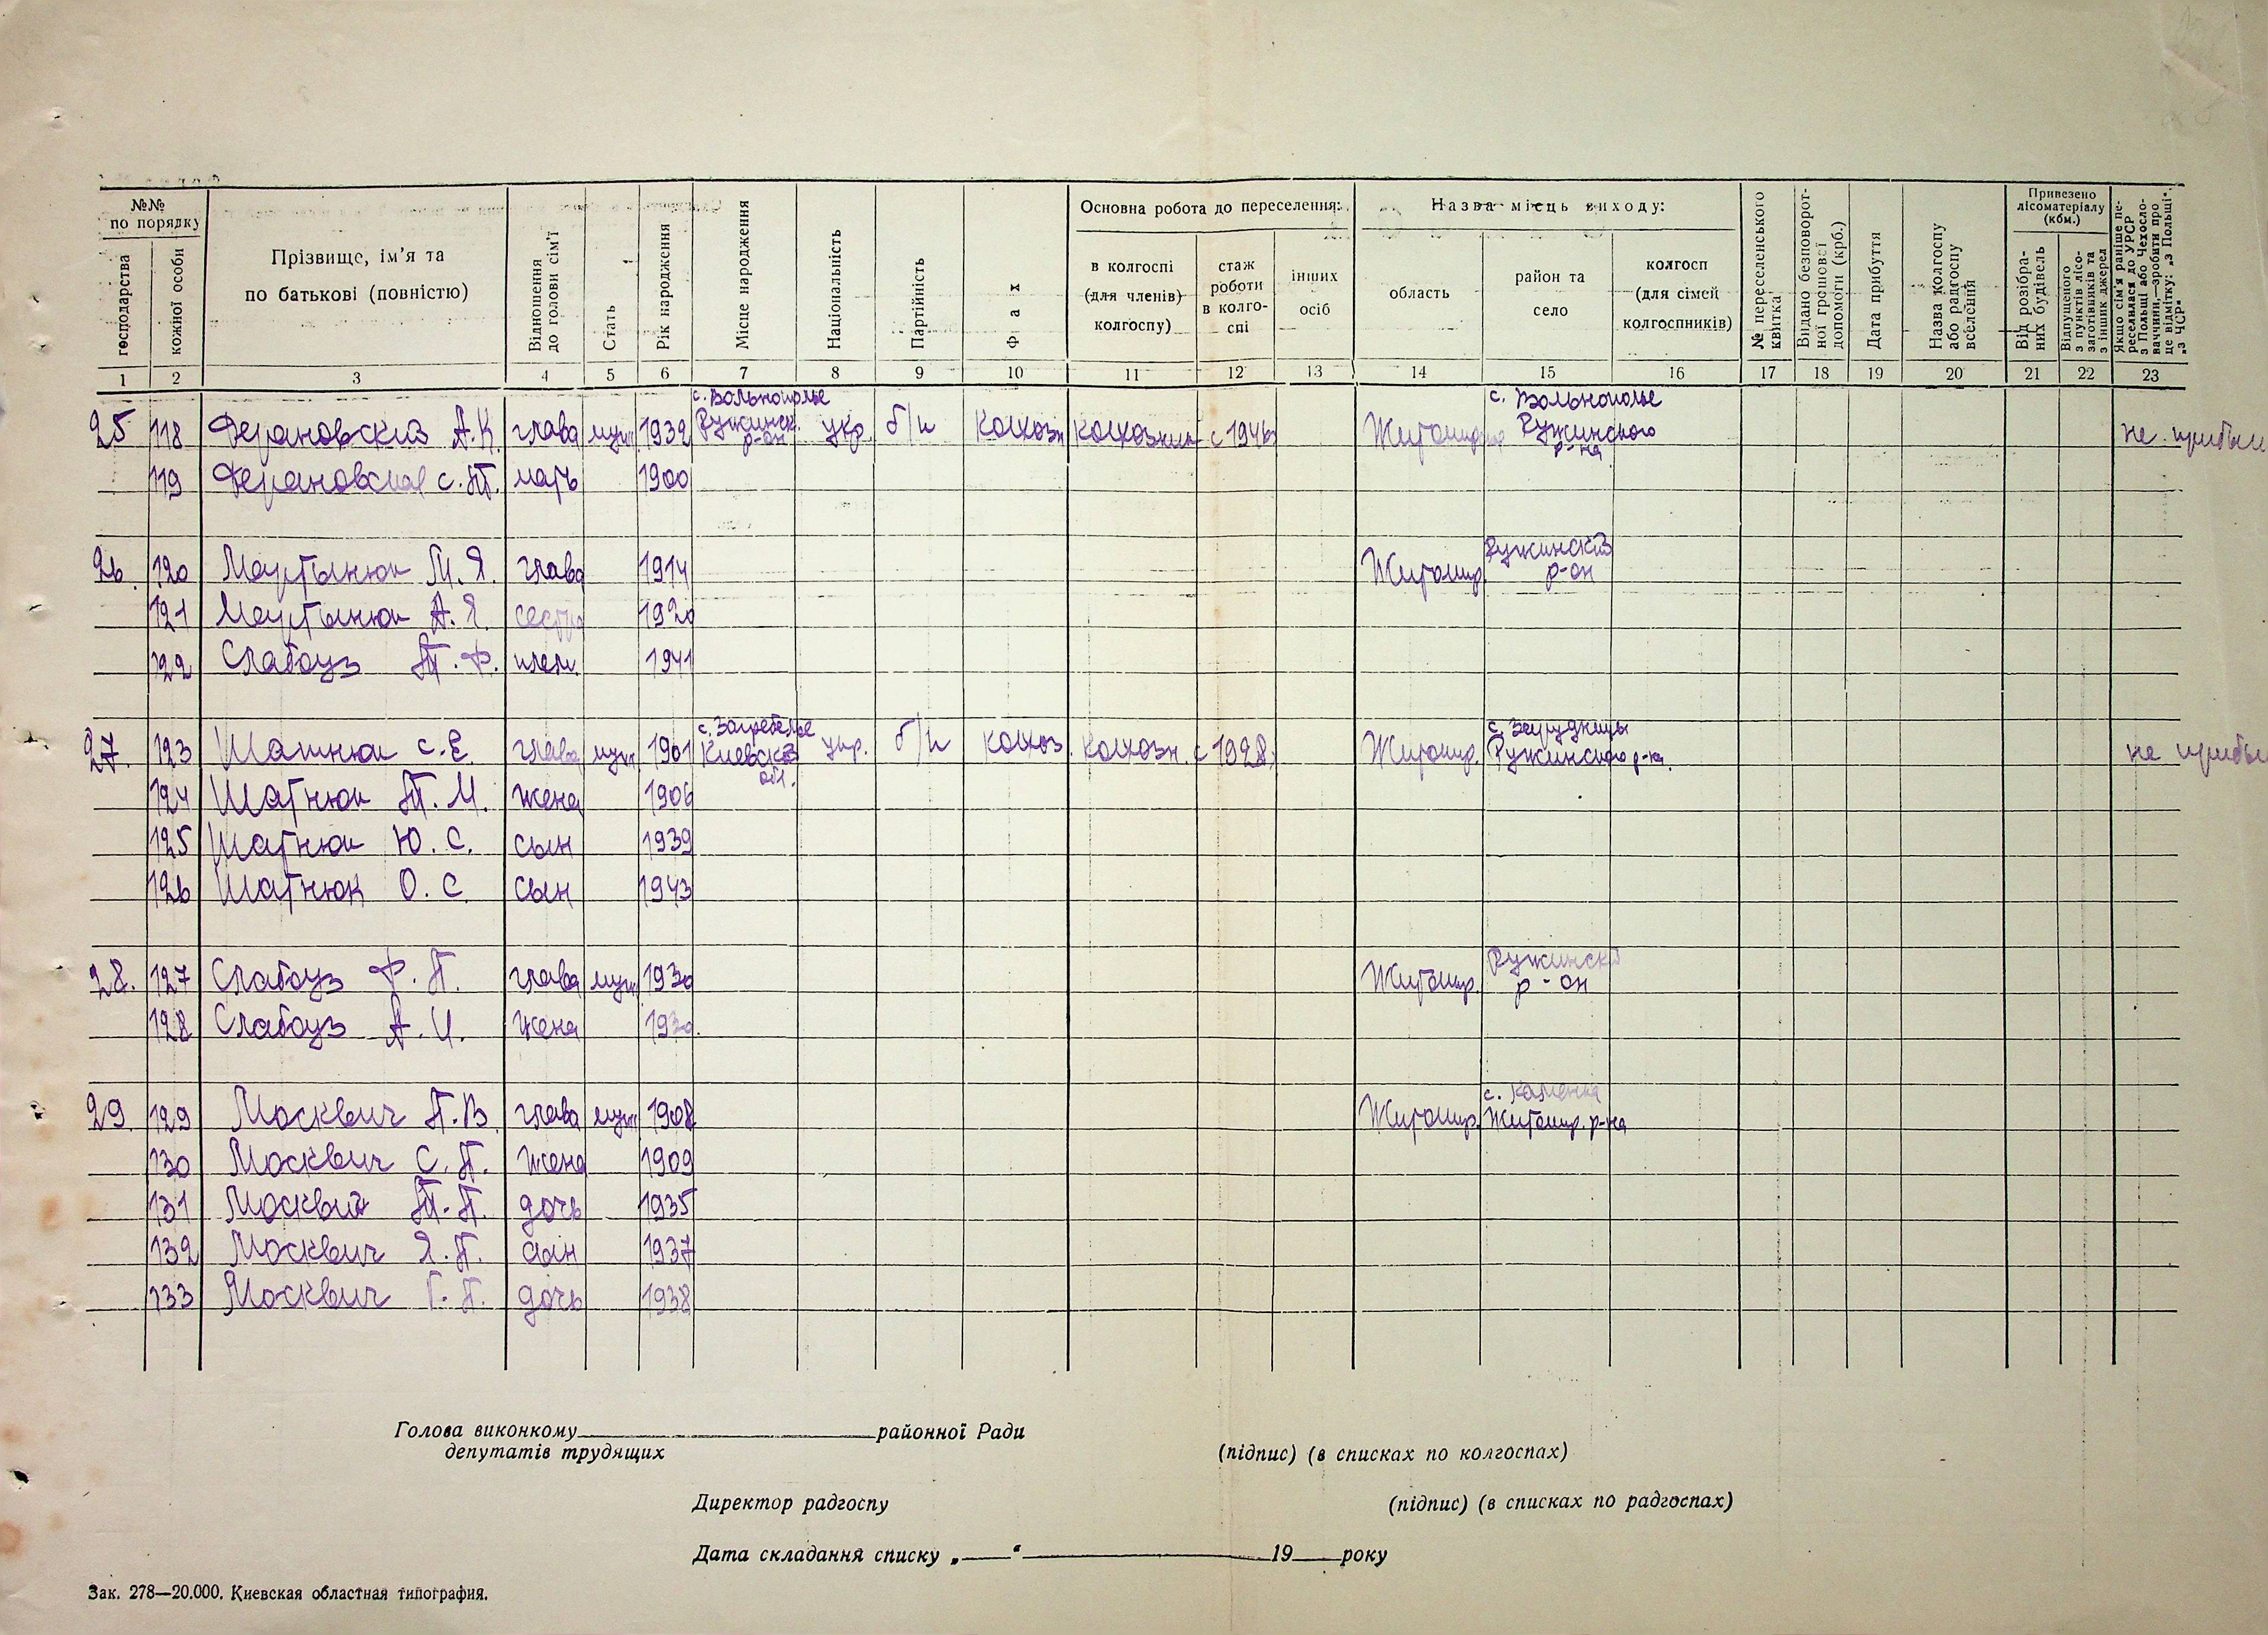 №№ по порядку
господарства
кожної особи
Прізвище, ім'я та
по батькові (повністю)
Відношення
до голови сім'ї
Стать
Рік народження
Місце народження
Національність
Партійність
Фах
Основна робота до переселення:
в колгоспі
(для членів)
колгоспу)
стаж
роботи
в колго-
спі
інших
осіб
Назва місць виходу:
область
район та
село
колгосп
(для сімей
колгоспників)
№ переселенського
квитка
Видано безповорот-
ної грошової
допомоги (крб.)
Дата прибуття
Назва колгоспу
або радгоспу
вселення
Привезено
лісоматеріалу
(кбм.)
Від розібра-
них будівель
Відпущеного
з пунктів лісо-
заготівників та
з інших джерел
Якщо сім'я раніше пе-
реселилася до УРСР
з Польщі або Чехосло-
ваччини,—зробити про
це відмітку: „з Польщі“,
„з ЧСР“
1 2 3 4 5 6 7 8 9 10 11 12 13 14 15 16 17 18 19 20 21 22 23
с. Вольнополье с. Вольнополье
25 118 А.К. глава муж. 1932 Ружинск. укр. б/п колхозн колхозник с 1946 Житомир Ружинского не прибыл
р-он р-на
119 С.П. мать 1900
Ружинский
26. 120 Мартынюк М.Я. глава 1914 Житомир. р-он
121 Мартынюк А.Я. сестра 1920
122 Слабоуз П.Ф. плем. 1941
с. Загребелье
27. 123 Шатнюк С.Е глава муж 1901 Киевской укр. б/п колхоз. колхозн. с 1928. Житомир. Ружинского р-на. не прибыл
обл.
124 Шатнюк П.М. жена 1906
125 Шатнюк Ю.С. сын 1939
126 Шатнюк О.С. сын 1943
Ружинский
28. 127 Слабоуз Ф.П. глава муж 1930 Житомир. р-он
128 Слабоуз А.И. жена
с. Каменка
29. 129 Москвич П.В. глава муж 1908 Житомир. Житомир. р-на
130 Москвич С.П. жена 1909
131 Москвич П.П. дочь 1935
132 Москвич Я.П. сын 1937
133 Москвич Г.П. дочь 1938
Голова виконкому районної Ради
депутатів трудящих
(підпис) (в списках по колгоспах)
Директор радгоспу (підпис) (в списках по радгоспах)
Дата складання списку „ “ 19 року
Зак. 278—20.000. Киевская областная типография.